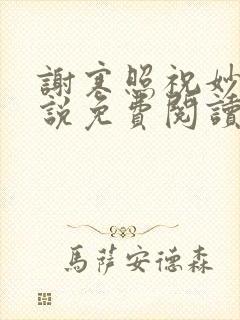 謝寒照祝妙
說免費閱讀
馬薩安德森